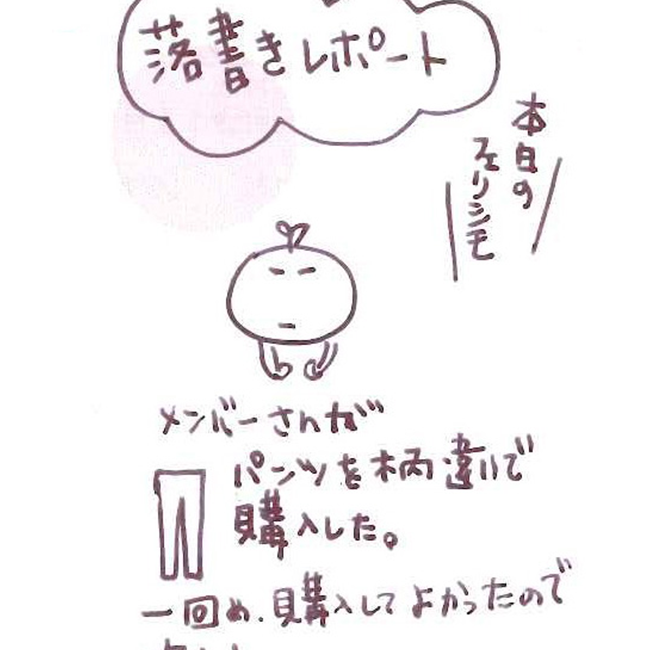 落書きレポート
本日の
フェリシモ
メンバーさんが
パンツを柄違いで
購入した。
一回め、購入してよかったので